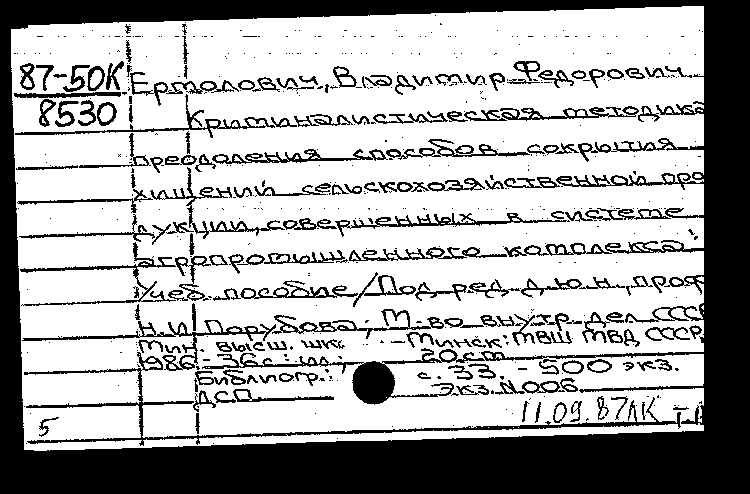 87-50К Ермолович, Владимир Федорович
8530 Криминалистическая методика
преодоления способов сокрытия
хищений сельскохозяйственной про
дукции, совершенных в системе
агропромышленного комплекса:
Учеб. пособие / Под ред. д.ю.н., проф.
Н.И. Порубова; М-во внутр. дел СССР,
Мин. высш. шк. - Минск: МВШ МВД СССР,
1986. - 36 с.: ил.; 20 см
Библиогр.: с. 33. - 500 экз.
ДСП. Экз. N 006.
11.09.87 ЛК
5